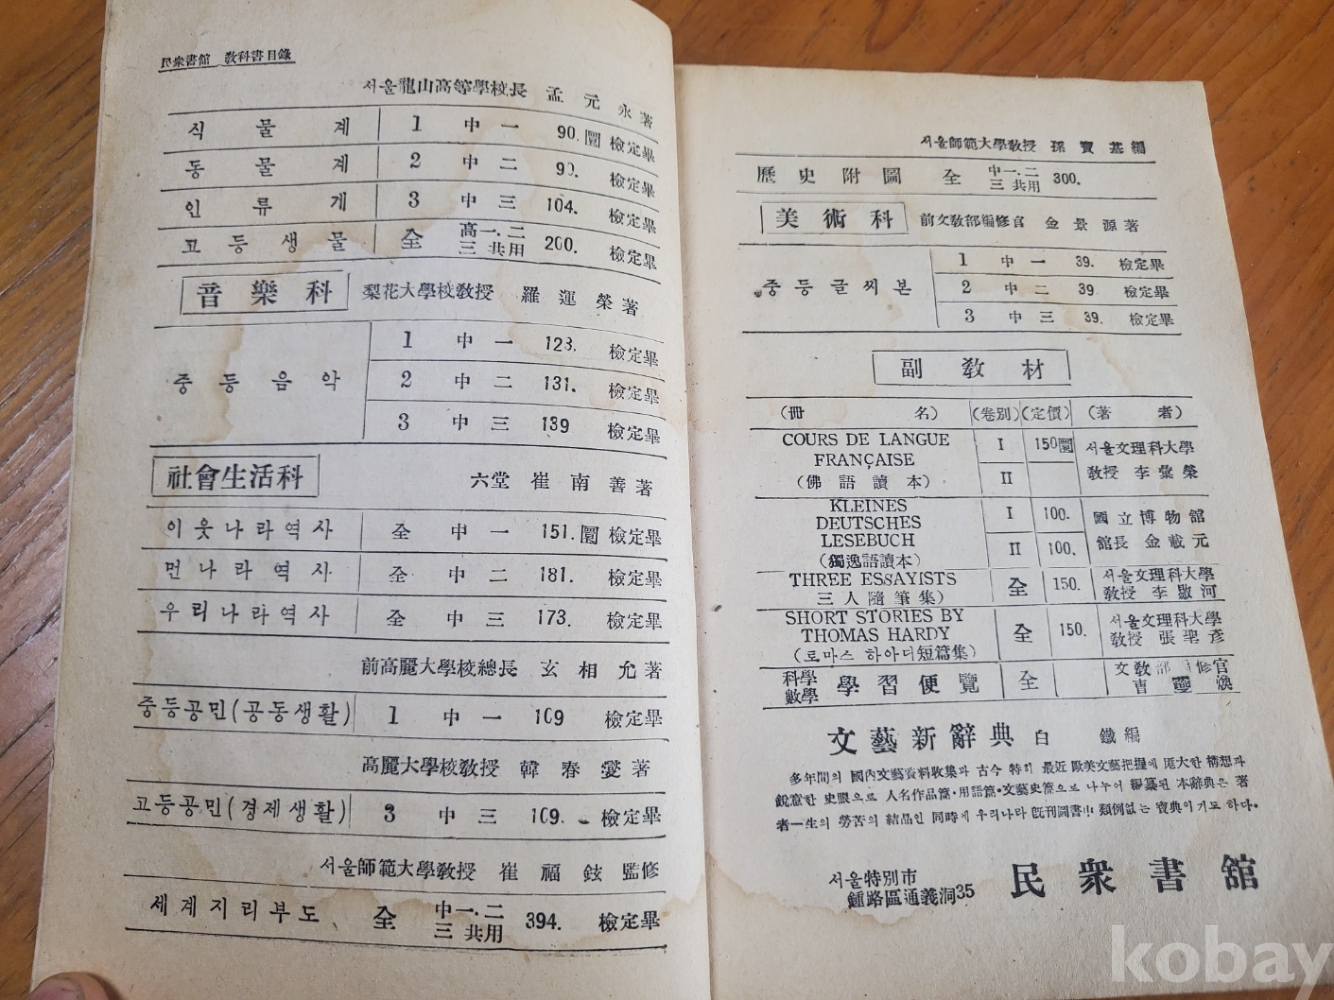 民衆書館 敎科書目錄
서울龍山高等學校長 孟元永著
식물계 1 中一 90. 圜 檢定畢
동물계 2 中二 90. 檢定畢
인류계 3 中三 104. 檢定畢
고등생물 全 高一.二三共用 200. 檢定畢
音樂科 梨花大學校敎授 羅運榮著
중등음악
1 中一 128. 檢定畢
2 中二 131. 檢定畢
3 中三 139 檢定畢
社會生活科 六堂 崔南善著
이웃나라역사 全 中一 151. 圜 檢定畢
먼나라역사 全 中二 181. 檢定畢
우리나라역사 全 中三 173. 檢定畢
前高麗大學校總長 玄相允著
중등공민(공동생활) 1 中一 109 檢定畢
高麗大學校敎授 韓春燮著
고등공민(경제생활) 3 中三 109. 檢定畢
서울師範大學敎授 崔福鉉監修
세계지리부도 全 中一.二三共用 394. 檢定畢
서울師範大學敎授 孫寶基編
歷史附圖 全 中一.二三共用 300.
美術科 前文敎部編修官 金景源著
중등글씨본
1 中一 39. 檢定畢
2 中二 39 檢定畢
3 中三 39. 檢定畢
副敎材
(冊名) (卷別) (定價) (著者)
COURS DE LANGUE
FRANÇAISE
(佛語讀本)
I 150圜
II
서울文理科大學
敎授 李彙榮
KLEINES
DEUTSCHES
LESEBUCH
(獨逸語讀本)
I 100.
II 100.
國立博物館
館長 金載元
THREE ESSAYISTS
三人隨筆集)
全 150.
서울文理科大學
敎授 李敭河
SHORT STORIES BY
THOMAS HARDY
(로마스 하아디短篇集)
全 150.
서울文理科大學
敎授 張聖彦
科學
數學 學習便覽 全
文敎部 修官
曺
文藝新辭典 白鐵編
多年間의 國內文藝資料收集과 古今 特히 最近 歐美文藝把握에 厖大한 構想과
銳意한 史眼으로 人名作品篇·用語篇·文藝史篇으로 나누어 編纂된 本辭典은 著
者一生의 勞苦의 結晶인 同時에 우리나라 旣刊圖書中 類例없는 寶典이기도 하다.
서울特別市
鍾路區通義洞35
民衆書舘
kobay